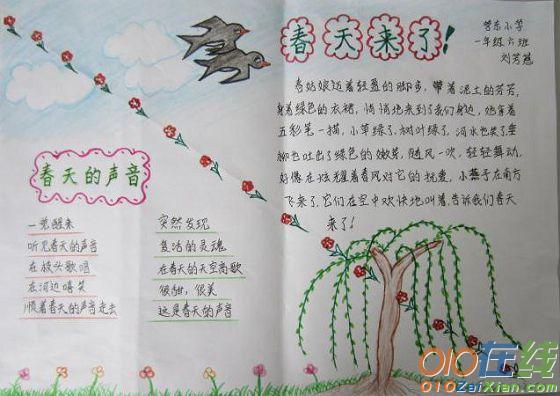 春天来了！
营东小学
一年级六班
刘芳冠
春姑娘迈着轻盈的脚步，带着泥土的芬芳，
身着绿色的衣裙，悄悄地来到了我们身边，她拿着
五彩笔一描，小草绿了，树叶绿了，河水也笑了，垂
柳也吐出了绿色的嫩芽，随风一吹，轻轻舞动，
好像在炫耀着春风对它的抚爱，小燕子在南方
飞来了，它们在空中欢快地叫着，告诉我们春天
来了！
春天的声音
一觉醒来
听见春天的声音
在枝头歌唱
在河边嘻笑
顺着春天的声音走去
突然发现
复活的灵魂
在春天的天空高歌
很甜，很美
这是春天的声音
010在线
010ZaiXian.com